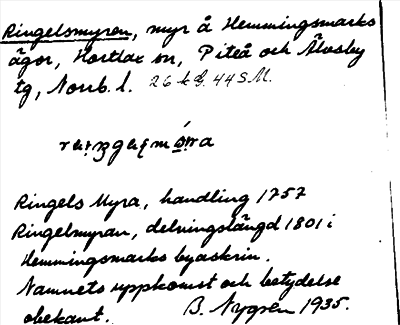 Ringelsmyren, myr å Hemmingsmarks
ägor, Hortlax sn, Piteå och Älvsby
tg, Norrb. l. 26 k G. 44 S.M.
Ringels Myra, handling 1757
Ringelmyran, delningslängd 1801 i
Hemmingsmarks byaskrin.
Namnets uppkomst och betydelse
obekant. B. Nygren 1935.